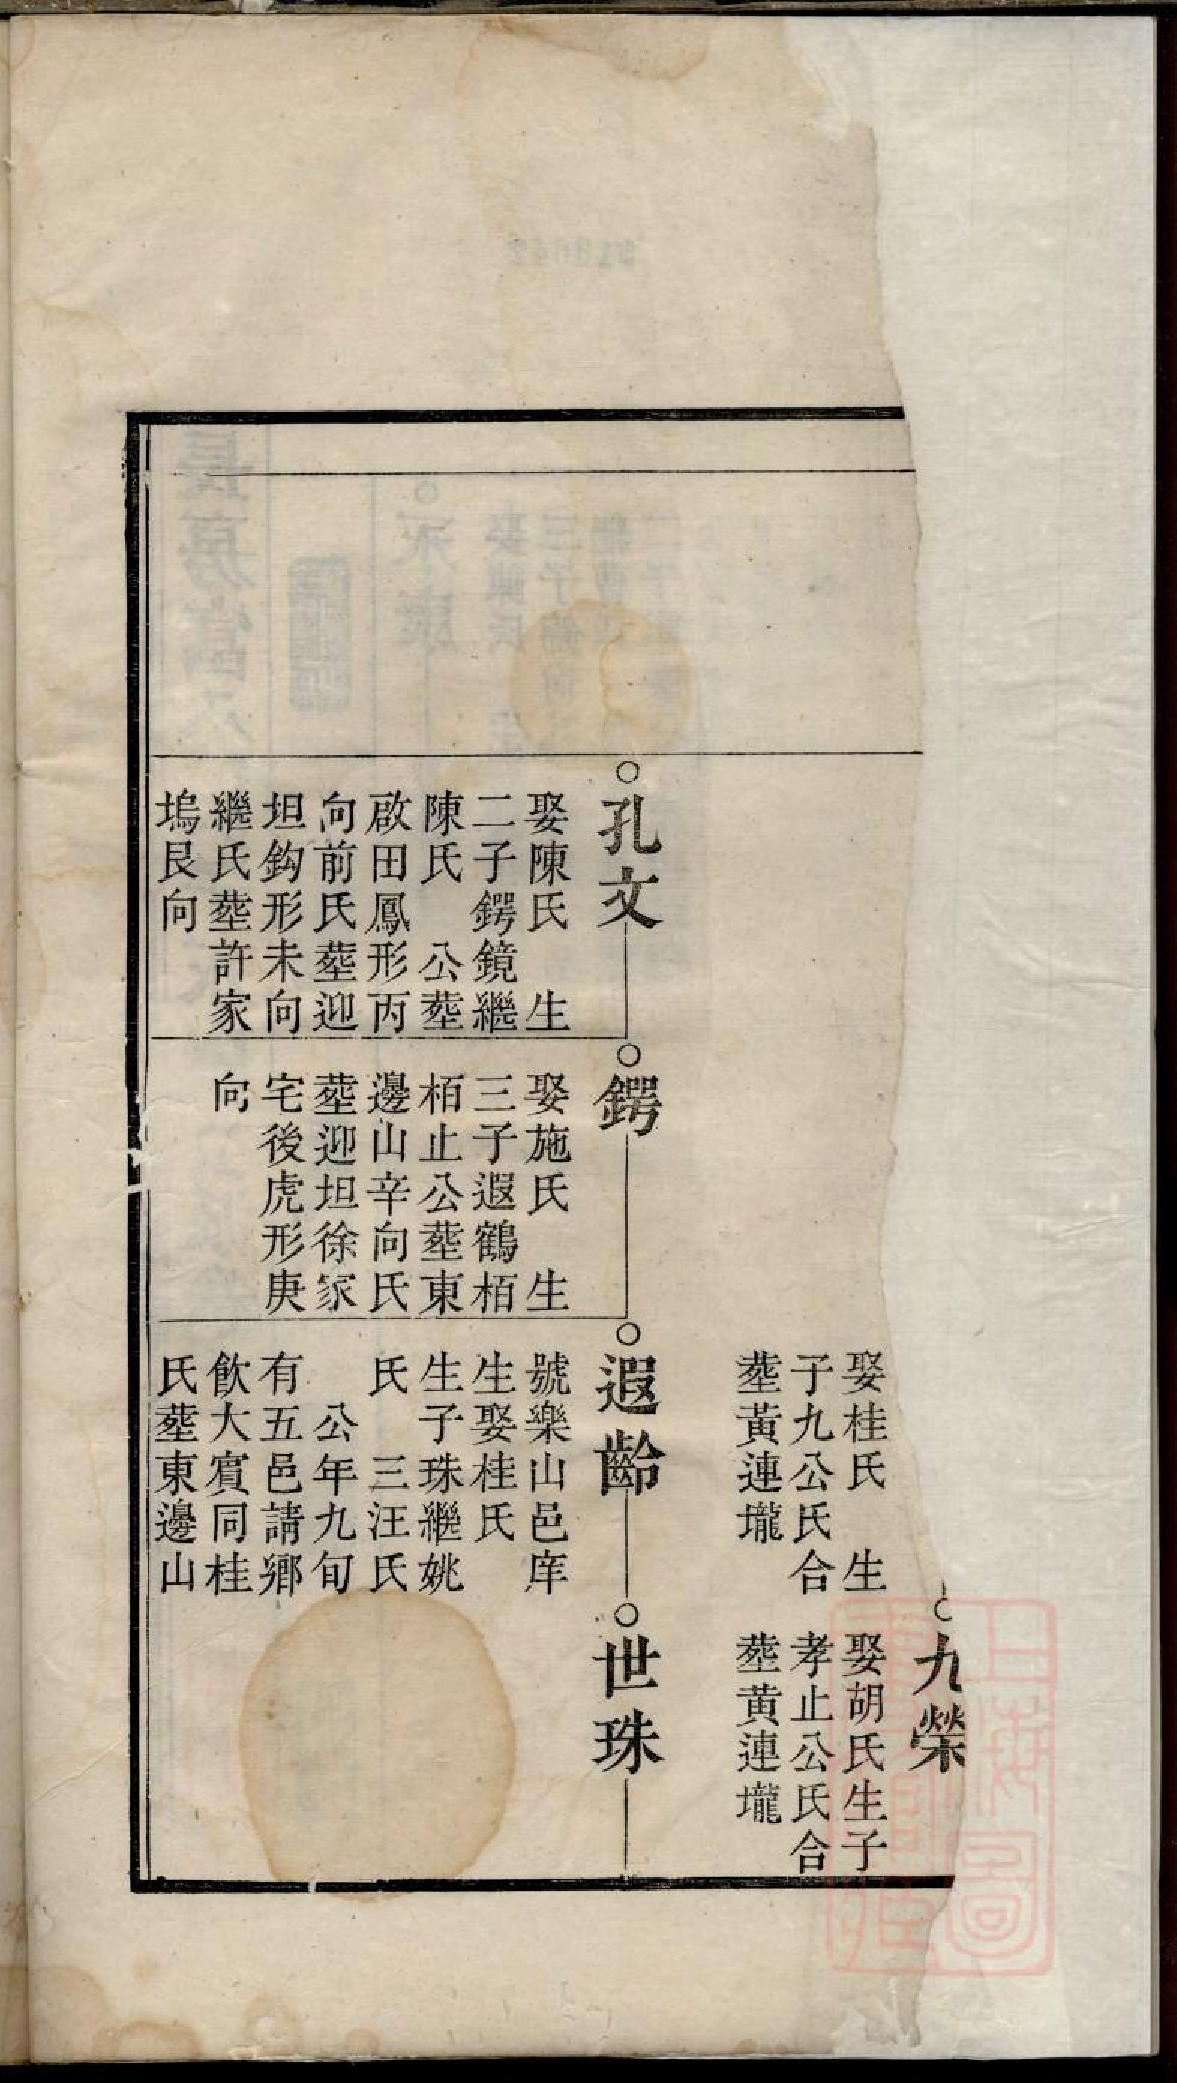 娶桂氏　生
子九公氏合
塟黃連壠
九榮
娶胡氏生子
孝止公氏合
塟黃連壠
孔文
娶陳氏　生
二子鍔鏡繼
陳氏　公塟
啟田鳳形丙
向前氏塟迎
坦鈎形未向
繼氏塟許家
塢艮向
鍔
娶施氏　生
三子遐鶴栢
栢止公塟東
邊山辛向氏
塟迎坦徐家
宅後虎形庚
向
遐齡
號樂山邑庠
生娶桂氏
生子珠繼姚
氏　三汪氏
公年九旬
有五邑請鄉
飲大賓同桂
氏塟東邊山
世珠
上海圖